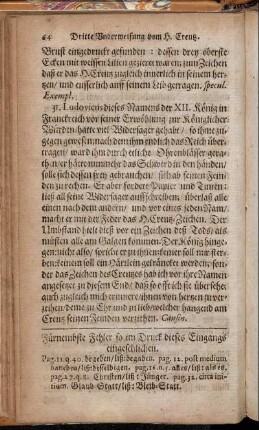 64 Dritte Underweisung vom H. Creutz.
Brust eingedruckt gefunden: dessen drey oberste
Ecken mit weissen Lilien gezieret waren; zum Zeichen
daß er das H. Creutz zugleich innerlich in seinem her-
tzen, und eusserlich auff seinem Leib getragen. Specul.
Exempl.
31. Ludovicus dieses Namens der XII. König in
Franckreich vor seiner Erwöhlung zur Königlicher
Würden hatte viel Widersager gehabt, so ihme zu-
gegen gewesen: nach dem ihm endlich das Reich über-
tragen, ward ihm durch etliche Ohrenblässer gera-
then: er hätte nunmehr das Schwerd in den händen/
solle sich dessen frey gebrauchen, sich ab seinen Feinden
zu rechen. Er aber fordert Papier und Tinten:
ließ all seine Widersager auffschreiben, überlaß alle
einen nach dem andern, und vor eines jeden Nam/
macht er mit der Feder das H. Creutz-Zeichen. Der
Umbstand hielt dieß vor ein Zeichen deß Tods, als
müsten alle am Galgen kommen. Der König hinge-
gen: nicht also, sprich er zu ihnen: keiner soll mir ster-
ben: keinem soll ein Härlein gekräncket werden; son-
der das Zeichen des Creutzes hab ich vor ihre Namen
angesetzt zu diesem End, daß so offt ich sie übersehe
auch zugleich mich erinnere ihnen von hertzen zu ver-
zeihen, deme zu Ehr und zu lieb, welcher hangend am
Creutz seinen Feinden verziehen. Causin.
Fürnembste Fehler so im Druck dieses Eingangs
eingeschlichen.
pag. 11. q. 40. begeben, liß: begaben. pag. 12. post medium
haneben, liß: disselbigen. pag. 16. n. 5. altes, liß: als es.
pag. 27. q. 8. Christen, liß: Jünger. pag. 32. circa ini-
tium. Glaub-Statt, liß: Bleib-Statt.